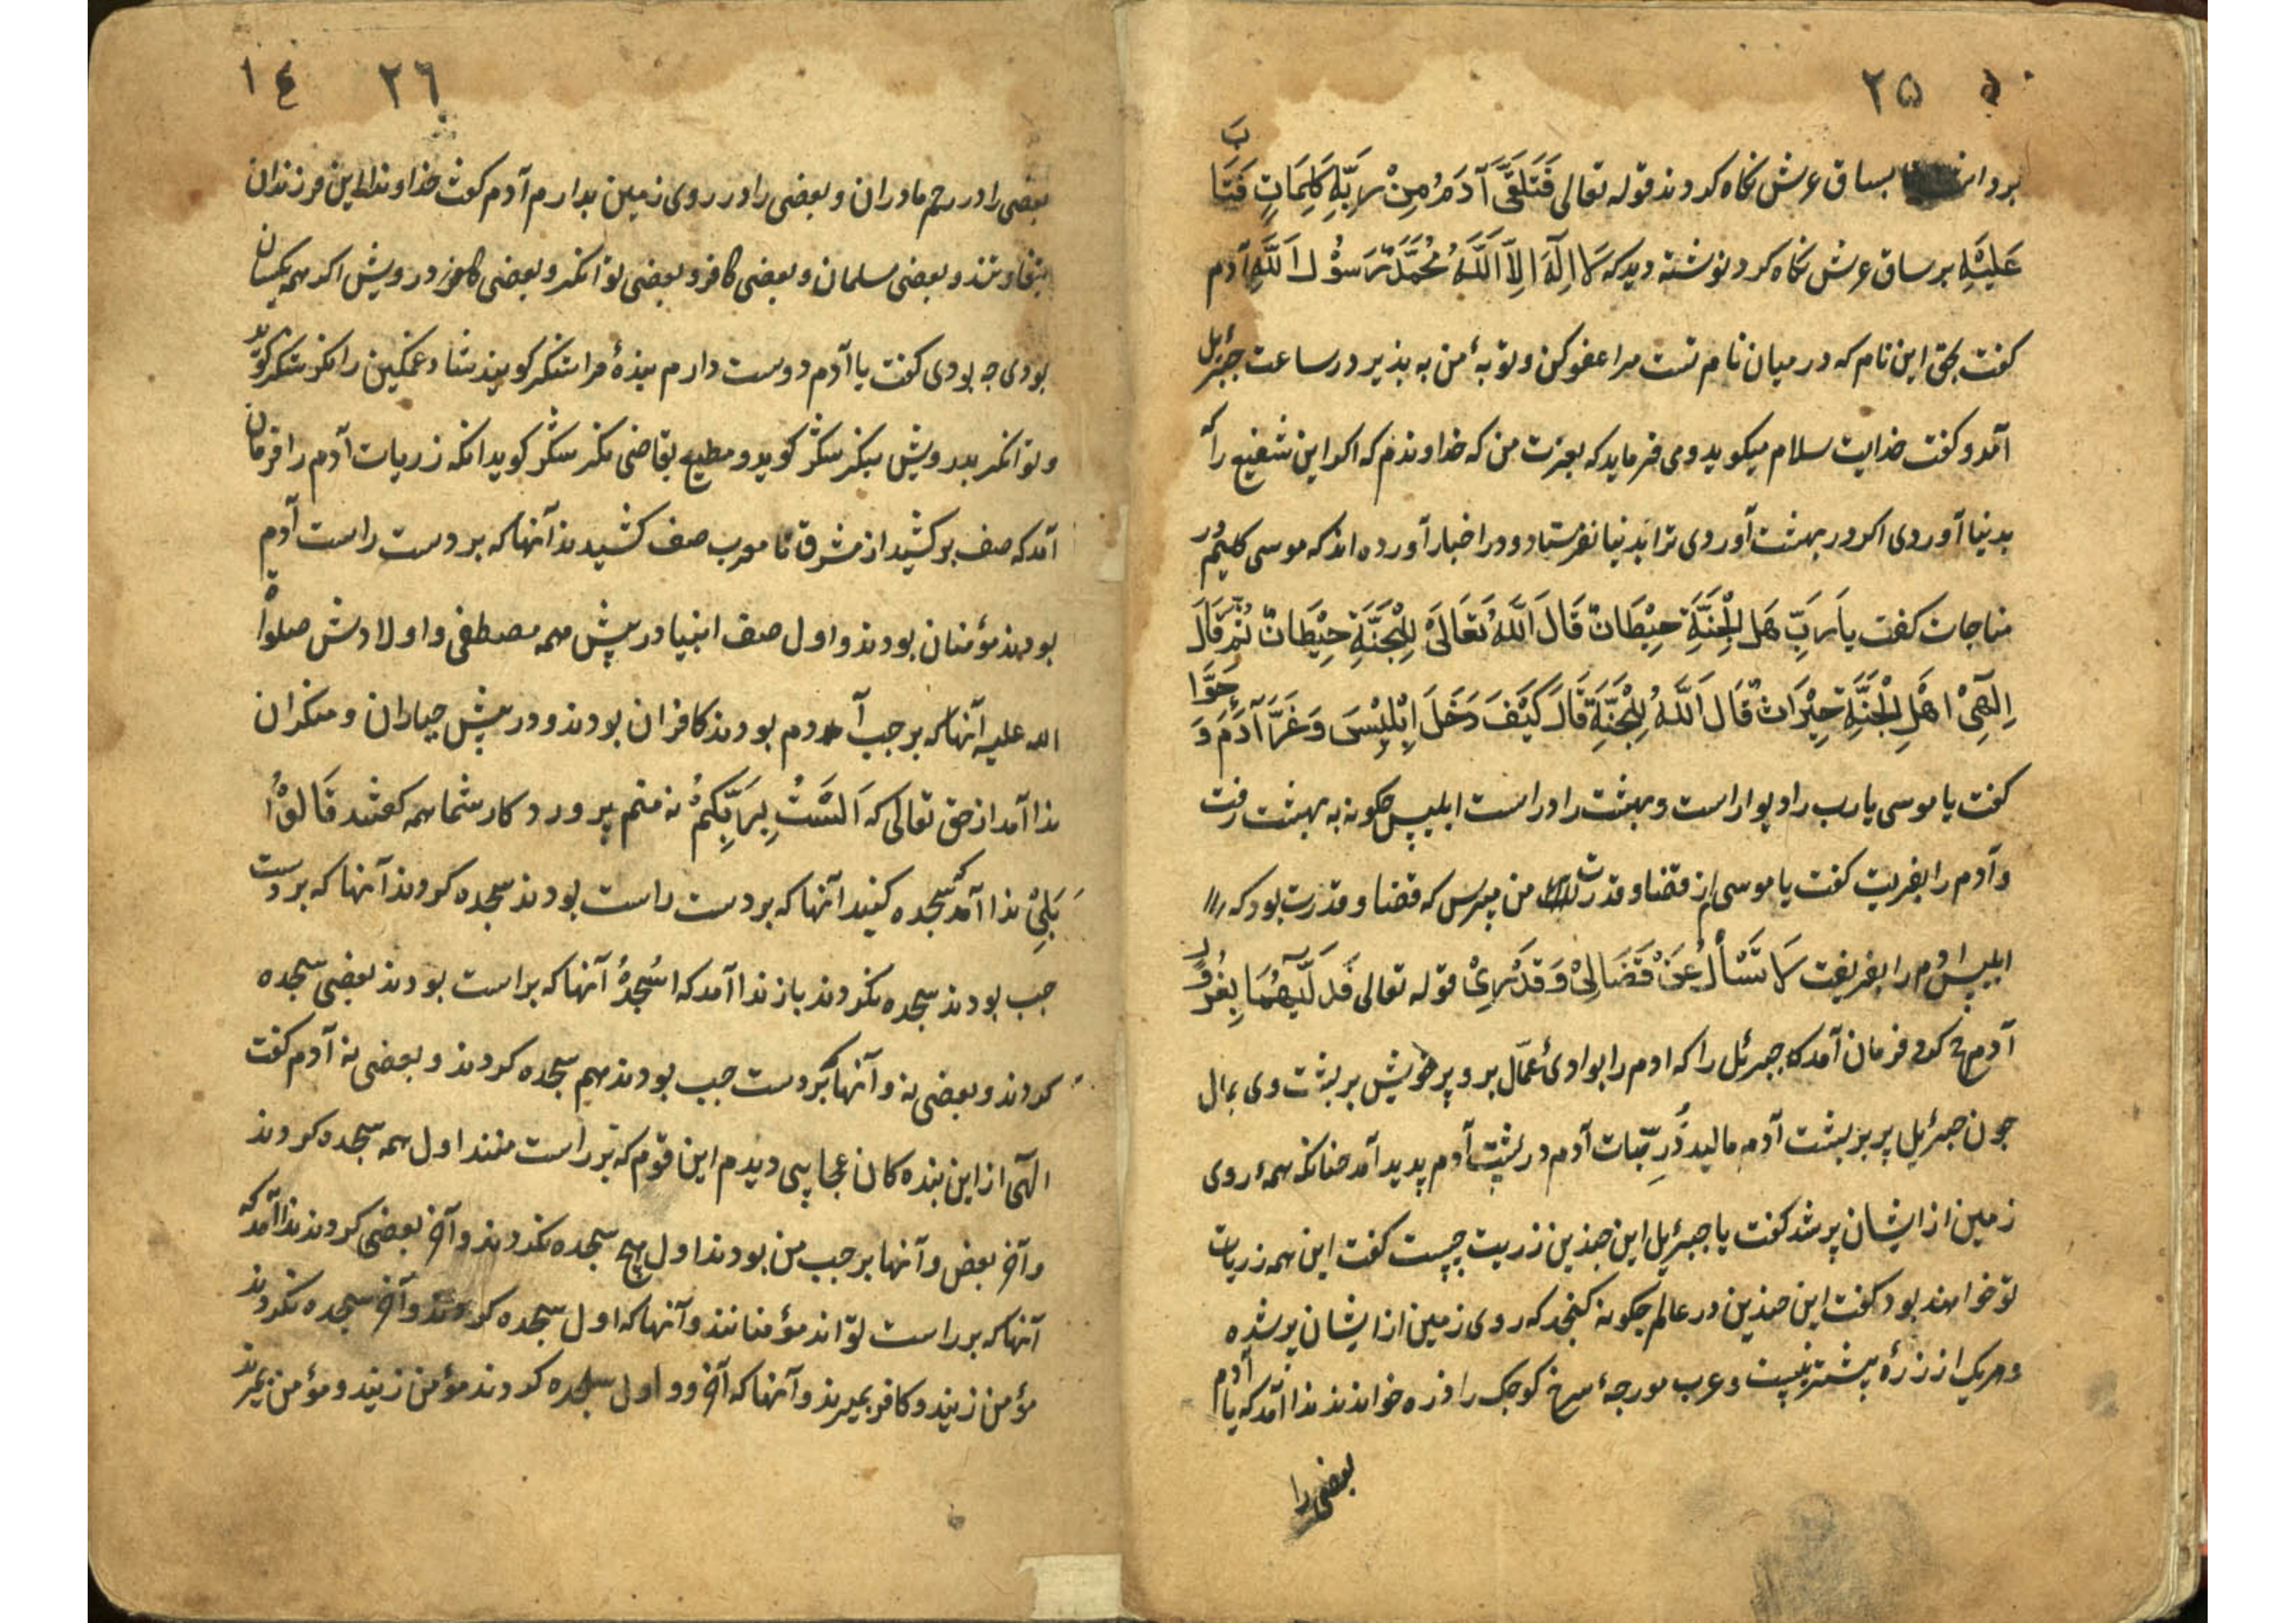 ۲۵
برد بساق عرش نکاه کردند قوله تعالی فَتَلَقَّی آدَمُ مِنْ رَبِّهِ کَلِمَاتٍ فَتَابَ
عَلَیْهِ بر ساق عرش نکاه کرد نوشته دید که لَا اِلٰهَ اِلَّا اَللّٰهُ مُحَمَّدٌ رَسُوْلُ اَللّٰهِ آدم
کفت بحق این نام که در میان نام تست مرا عفو کن و توبهٔ من به بذیر در ساعت جبرئیل
آمد و کفت خدایت سلام میکوید و می فرماید که بعزت من که خداوندم که اکر این شفیع را که
بدنیا آوردی اکر در بهشت آوردی ترا بدنیا نفرستاد و در اخبار آورده اند که موسی کلیم در
مناجات کفت یا رَبِّ هَل لِلْجَنَّةِ حِیْطَانٌ قَالَ اَللّٰهُ تَعَالَی لِلْجَنَّةِ حِیْطَانٌ ثُمَّ قَالَ
اِلٰهِیْ اهَلِ لِلْجَنَّةِ حِیْرَاثٌ قَال اَللّٰهُ لِلْجَنَّةِ قَالَ کَیْفَ دَخَلَ اِبْلِیْسَ وَغَرَّ آدَمَ وَ حَوَّا
کفت یا موسی یا رب را دیوار است و بهشت را در است ابلیس چکونه به بهشت رفت
و آدم را بفریت کفت یا موسی از قضا و قدرت من مپرس که قضا و قدرت بود که
ابلیس آدم را بفریفت لَا تَسْأَلْ عَنْ قَضَائِیْ وَقَدْرِیْ قوله تعالی فَدَلَّیٰهُمَا بِغُرُوْرٍ
آدم کرد فرمان آمد که جبرئل را که ادم را بوادئ عمّال برو پر خویش بر بشت وی بمال
جون جبرئیل پر بر بشت آدم مالید ذُرِیّات آدم در بشت آدم پدید آمد جنانکه همهٔ روی
زمین از ایشان پر شد کفت یا جبرئیل این جندین زریت چیست کفت این همه زریات
تو خواهند بود کفت این جندین در عالم چکونه کنجد که روی زمین از ایشان پر شده
و هر یک از زرهٔ بیشتر نیست و عرب مورجهٔ سرخ کوجک را ذره خوانند ندا آمد که یا آدم
بعضی را
۲٦ ۱٤
بعضی را در رحم مادران و بعضی را در روی زمین بدارم آدم کفت خداوندا این فرزندان
متفاوتند و بعضی مسلمان و بعضی کافر و بعضی توانکر و بعضی درویش اکر همه یکسان
بودی جه بودی کفت یا آدم دوست دارم بندهٔ مرا شکر کویند شاد غمکین را نکرد شکر کوید
و توانکر بدرویش بنکرد شکر کوید و مطیع بقاضی نکرد شکر کوید انکه زریات آدم را فرمان
آمد که صف بر کشید از مشرق تا مغرب صف کشیدند آنها که بر دست راست آدم
بودند مؤمنان بودند و اول صف انبیا در پیش همه مصطفی و اولادش صلواة
الله علیه آنها که بر جب آدم بودند کافران بودند و در پیش جباران و منکران
ندا آمد از حق تعالی که اَلَسْتُ بِرَبِّکُمْ نه منم پروردکار شما همه کفتند قَالُوْا
بَلیٰ ندا آمد که سجده کنید آنها که بر دست راست بودند سجده کردند آنها که بر دست
جب بودند سجده نکردند باز ندا آمد که اسْجُدُ آنها که بر راست بودند بعضی سجده
کردند و بعضی نه و آنها که بر دست جب بودند هم سجده کردند و بعضی نه آدم کفت
الٰهی از این بنده کان عجایبی دیدم این قوم که بر راست منند اول همه سجده کردند
و آخر بعض و آنها بر جب من بودند اول هیج سجده نکردند و آخر بعضی کردند ندا آمد که
آنها که بر راست تو اند مؤمنانند و آنها که اول سجده کردند و آخر سجده نکردند
مؤمن زیند و کافر بمیرند و آنها که آخر و اول سجده کردند مؤمن زیند و مؤمن بمیرند